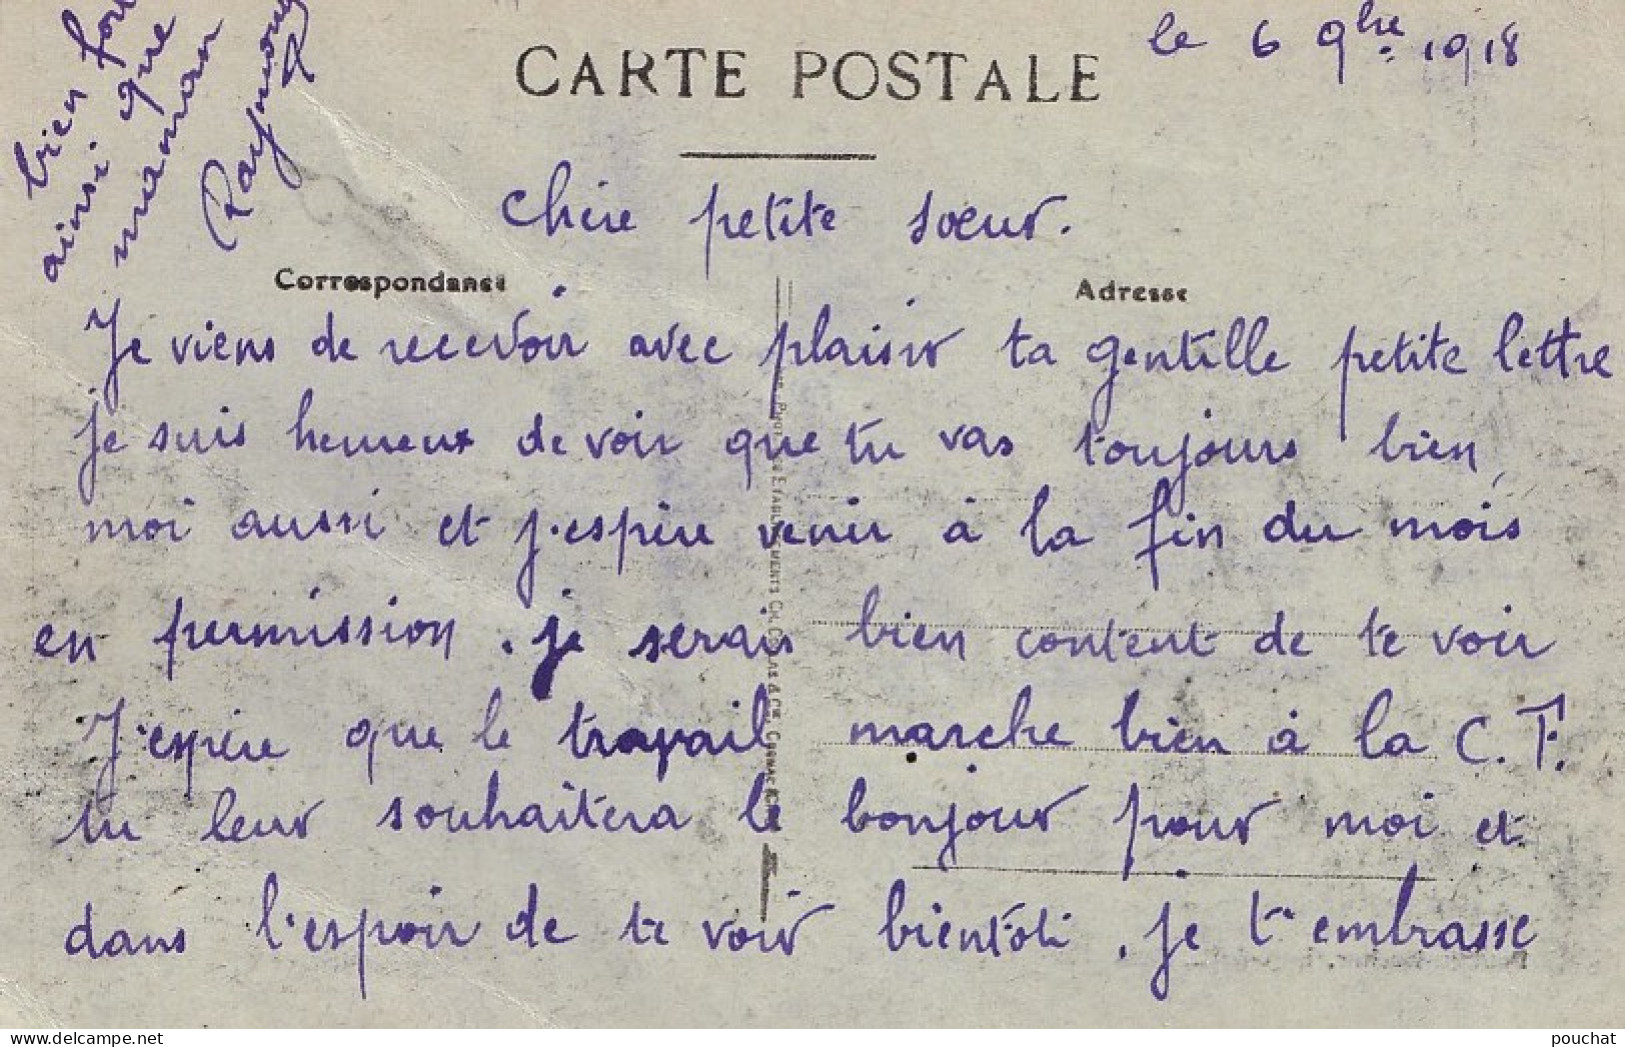 CARTE POSTALE
le 6 9bre. 1918
Chère petite sœur.
Correspondance
Adresse
Je viens de recevoir avec plaisir ta gentille petite lettre
je suis heureux de voir que tu vas toujours bien
moi aussi et j'espère venir à la fin du mois
en permission. je serais bien content de te voir
J'espère que le travail marche bien à la C.F.
tu leur souhaitera le bonjour pour moi et
dans l'espoir de te voir bientôt. je t'embrasse
bien fort
ainsi que
maman
Raymond
pouchat